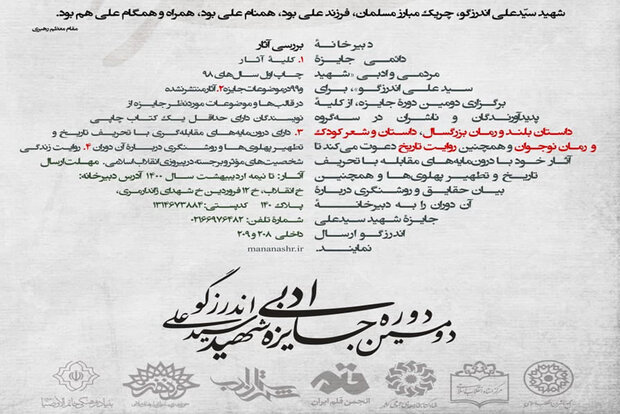 شهید سیّدعلی اندرزگو، چریک مبارز مسلمان، فرزند علی بود، همنام علی بود، همراه و همگام علی هم بود.
مقام معظم رهبری
دبیرخانهٔ
دائمی جایزهٔ
مردمی و ادبی «شهید
سید علی اندرزگو»، برای
برگزاری دومین دورهٔ جایزه، از کلیهٔ
پدیدآورندگان و ناشران در سه‌گروه
داستان بلند و رمان بزرگسال، داستان و شعر کودک
و رمان نوجوان و همچنین روایت تاریخ دعوت می‌کند تا
آثار خود با درون‌مایه‌های مقابله با تحریف
تاریخ و تطهیر پهلوی‌ها و همچنین
بیان حقایق و روشنگری دربارهٔ
آن دوران را به دبیرخانهٔ
جایزهٔ شهید سیدعلی
اندرزگو ارسال
نمایند.
بررسی آثار
۱. کلیهٔ آثار
چاپ اول سال‌های ۹۸
و۹۹درموضوعات‌جایزه۲.آثارمنتشرنشده
در قالب‌ها و موضوعات موردنظر جایزه از
نویسندگان دارای حداقل یک کتاب چاپی
۳. دارای درون‌مایه‌های مقابله‌گری با تحریف تاریخ و
تطهیر پهلوی‌ها و روشنگری دربارهٔ آن دوران ۴. روایت زندگی
شخصیت‌های مؤثر و برجسته در پیروزی انقلاب اسلامی. مهلت ارسال
آثار: تا نیمه اردیبهشت سال ۱۴۰۰ آدرس دبیرخانه:
خ انقلاب، خ ۱۲ فروردین خ شهدای ژاندارمری،
پلاک ۱۴۰ کدپستی: ۱۳۱۴۶۷۳۸۸۴
شمارهٔ تلفن: ۰۲۱۶۶۹۷۶۴۸۲
داخلی ۲۰۸ و ۲۰۹
mananashr.ir
دومین دوره جایزه ادبی شهید سید علی اندرزگو
انجمن قلم ایران